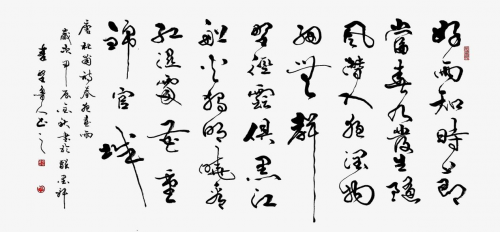 好雨知時節
當春乃發生隨
風潛入夜潤物
細無聲
野徑雲俱黑江
船火獨明曉看
紅濕處花重
錦官城
唐杜甫詩春夜喜雨
歲次甲辰秋書於墨軒